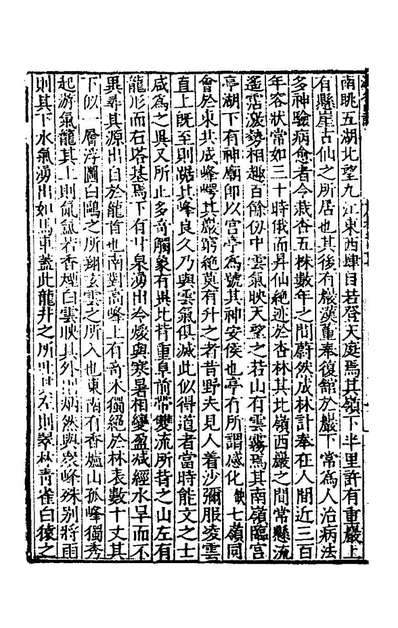 南眺五湖北望九江東西肆目若登天庭焉其嶺下半里許有重巖上
有縣崖古仙之所居也其後有巖漢董奉復館於巖下常為人治病法
多神驗病愈者令栽杏五株數年之間蔚然成林計奉在人間近三百
年容狀常如三十時俄而昇仙絶迹於杏林其北嶺西巖之間常懸流
遙霑激勢相趣百餘仞中雲氣映天望之若山有雲霧焉其南嶺臨宮
亭湖下有神廟即以宮亭為號其神安侯也亭有所謂感化缺七嶺同
會於東共成峰崿其巖窮絶莫有升之者昔野夫見人着沙彌服凌雲
直上既至則踞其峰良久乃與雲氣俱滅此似得道者當時能文之士
咸為之異又所止多奇觸象有異北背重阜前帶雙流所背之山左有
龍形而右塔基焉下有甘泉湧出冷煖與寒暑相變盈減經水旱而不
異尋其源出自於龍首也南對高峰上有奇木獨絶於林表數十丈其
下似一層浮圖白鷗之所翔玄雲之所入也東南有香爐山孤峰獨秀
起游氣籠其上則氤氳若香煙白雲映其外則炳然與衆峰殊別將雨
則其下水氣湧出如馬車蓋此龍井之所吐其左則翠林青雀白猿之